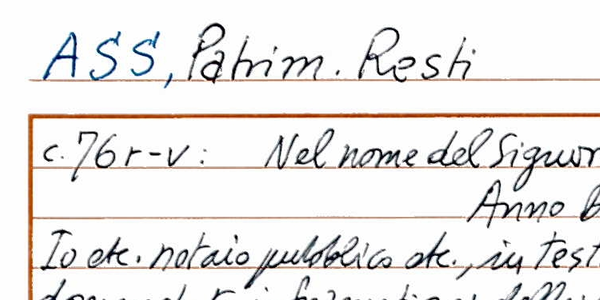 ASS, Patrim. Resti
c. 76 r-v: Nel nome del Signor
Anno
Io etc. notaio pubblico etc., in test